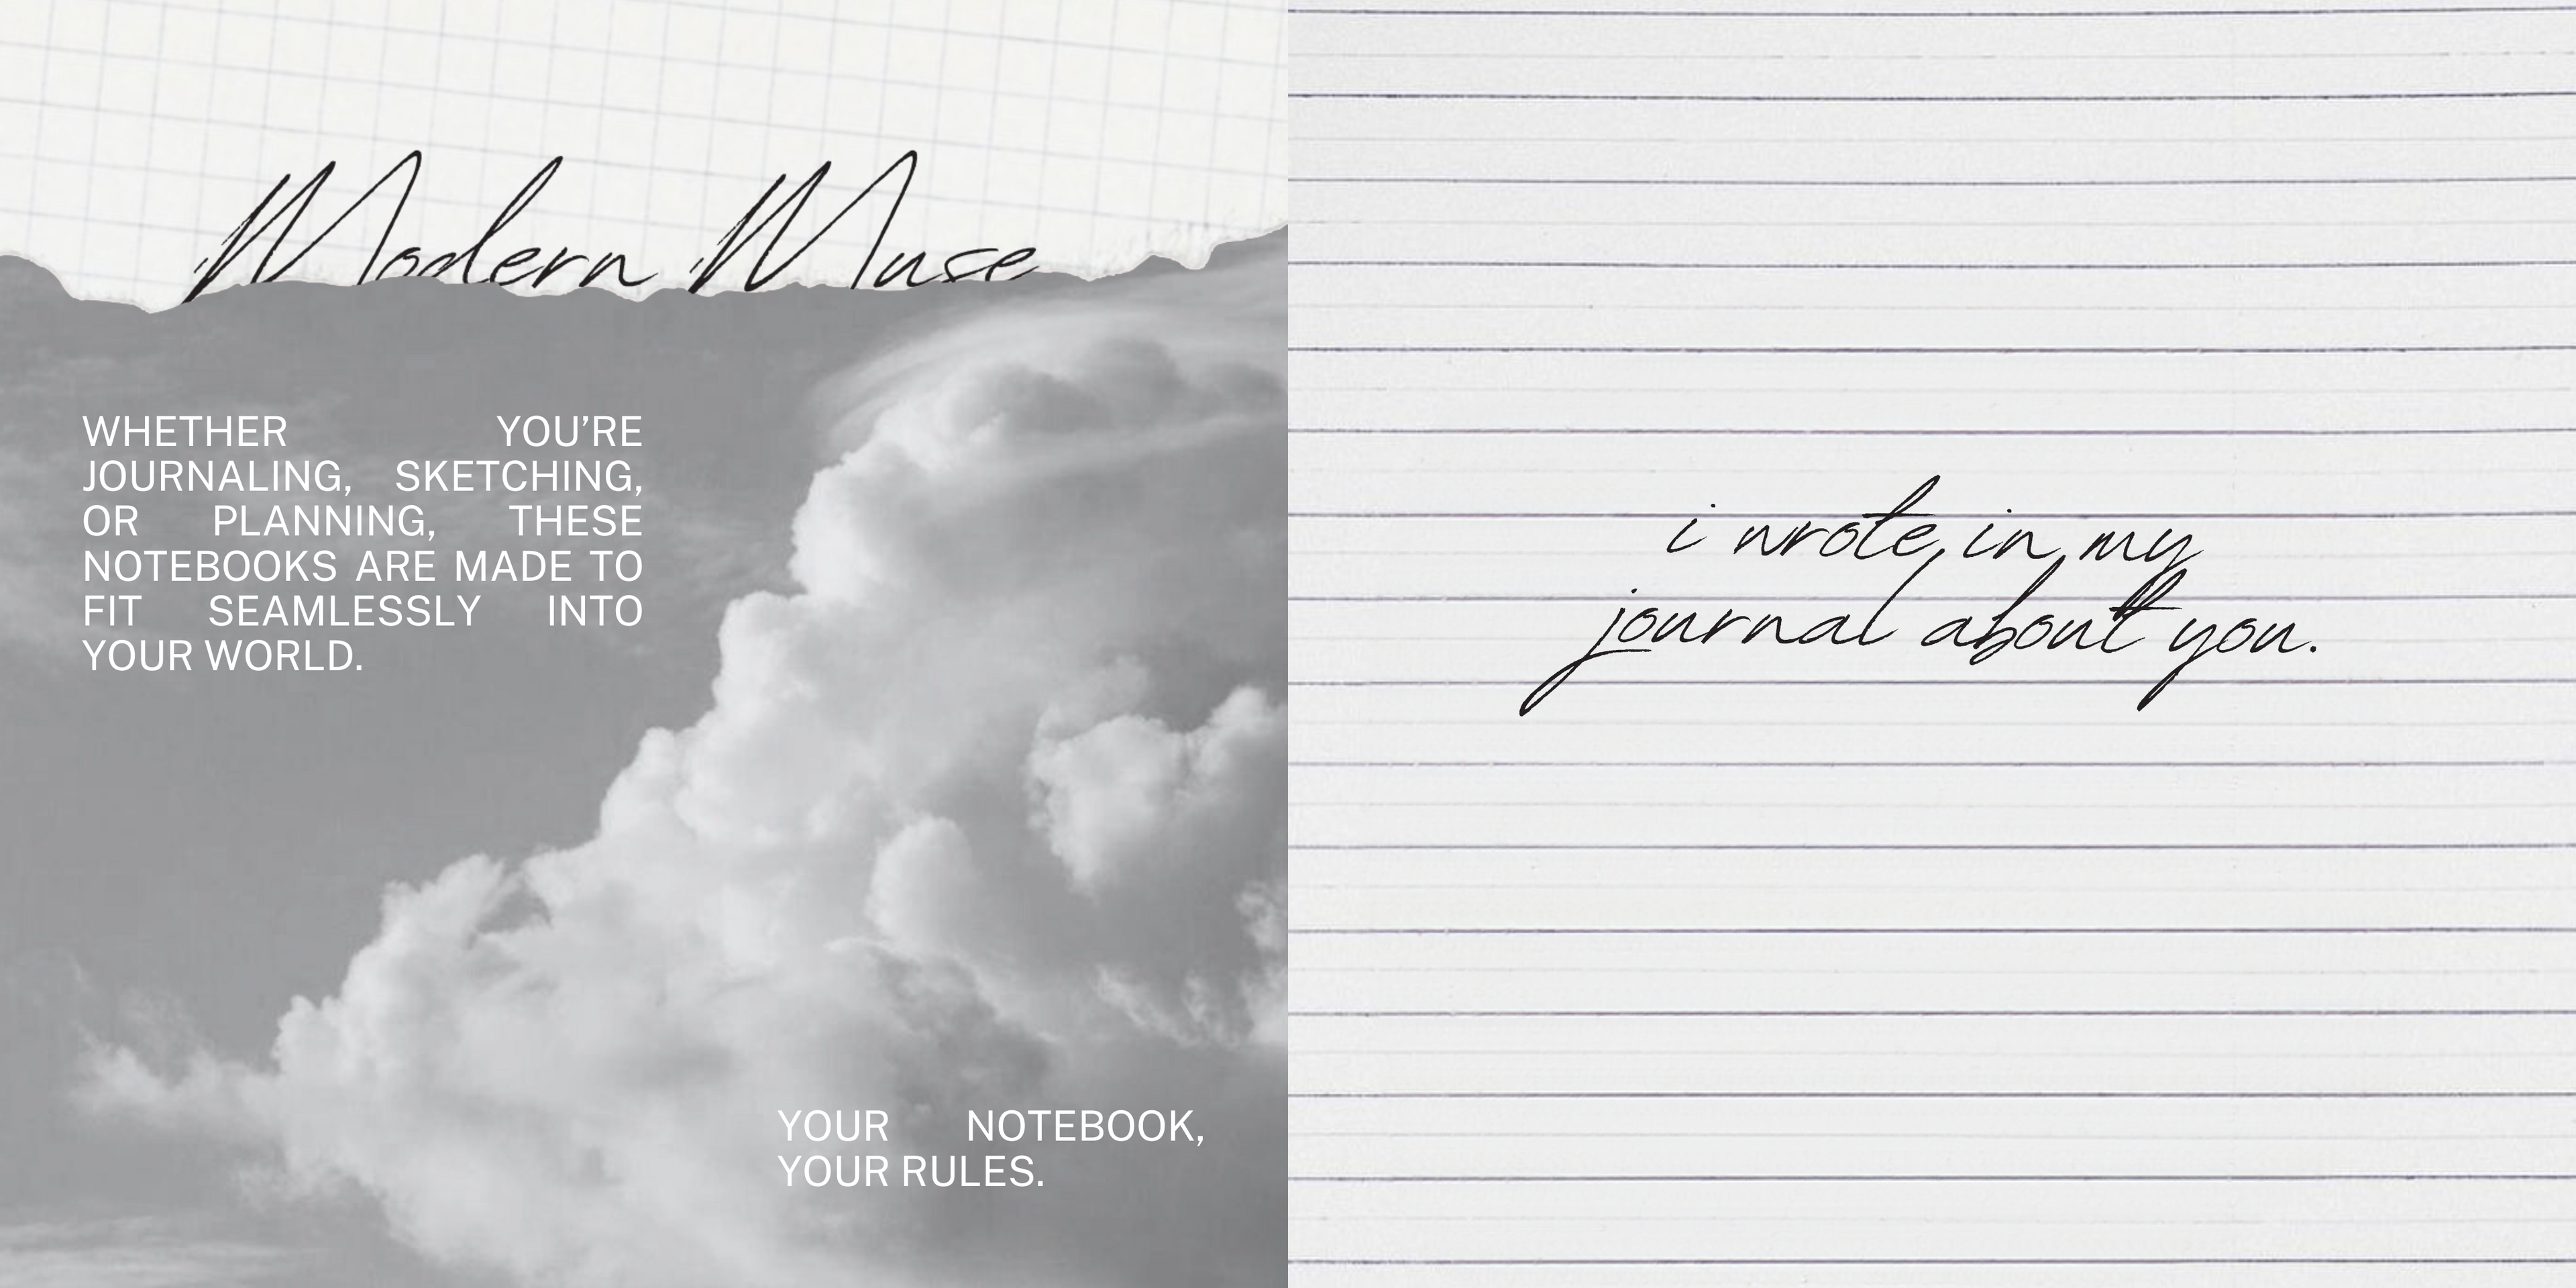 Modern Muse
WHETHER YOU’RE
JOURNALING, SKETCHING,
OR PLANNING, THESE
NOTEBOOKS ARE MADE TO
FIT SEAMLESSLY INTO
YOUR WORLD.
YOUR NOTEBOOK,
YOUR RULES.
i wrote in my
journal about you.